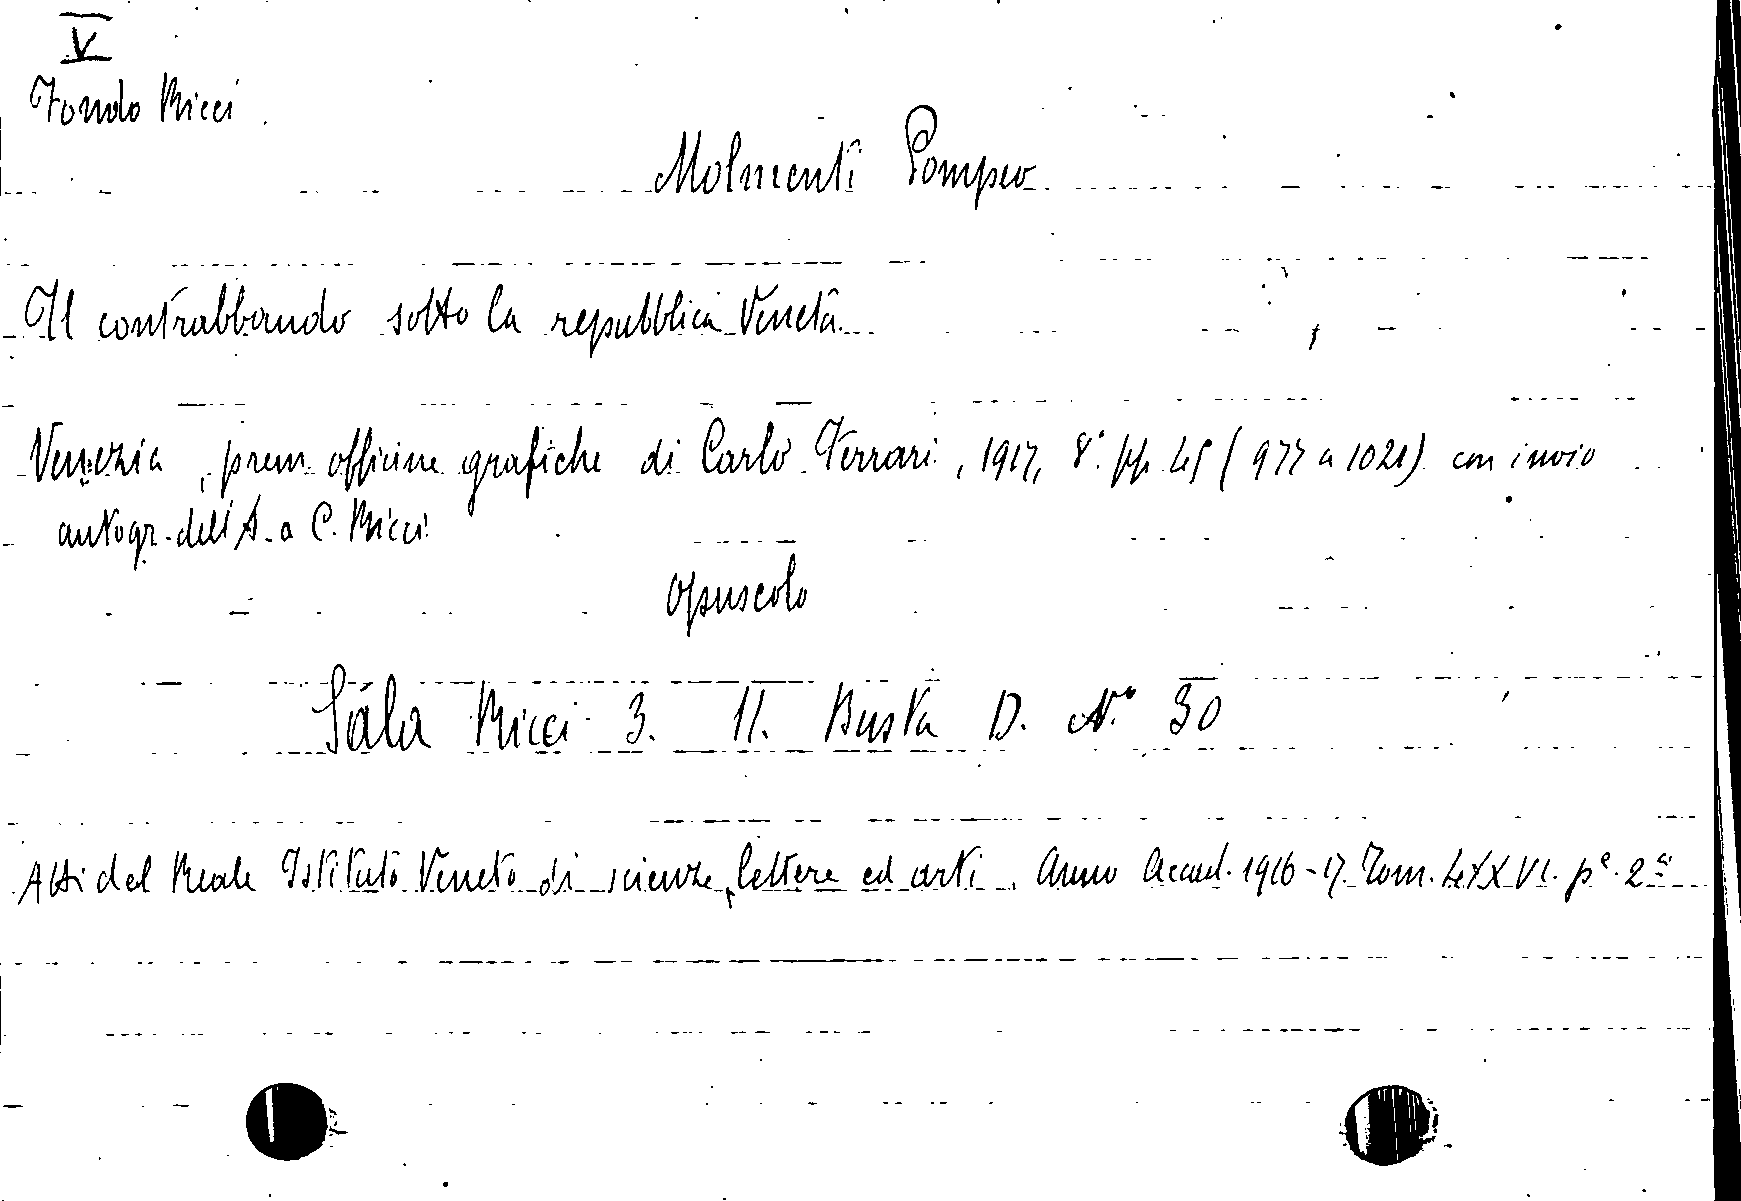 V
Fondo Ricci
Molmenti Pompeo
Il contrabbando sotto la repubblica Veneta
Venezia, prem. officine grafiche di Carlo Ferrari, 1917, 8° pp. 45 (977 a 1021) con invio
autogr. dell'A. a C. Ricci
Opuscolo
Sala Ricci 3. 11. Busta D. N.° 30
Atti del Reale Istituto Veneto di scienze, lettere ed arti. Anno Accad. 1916-17. Tom. LXXVI. p.e 2a